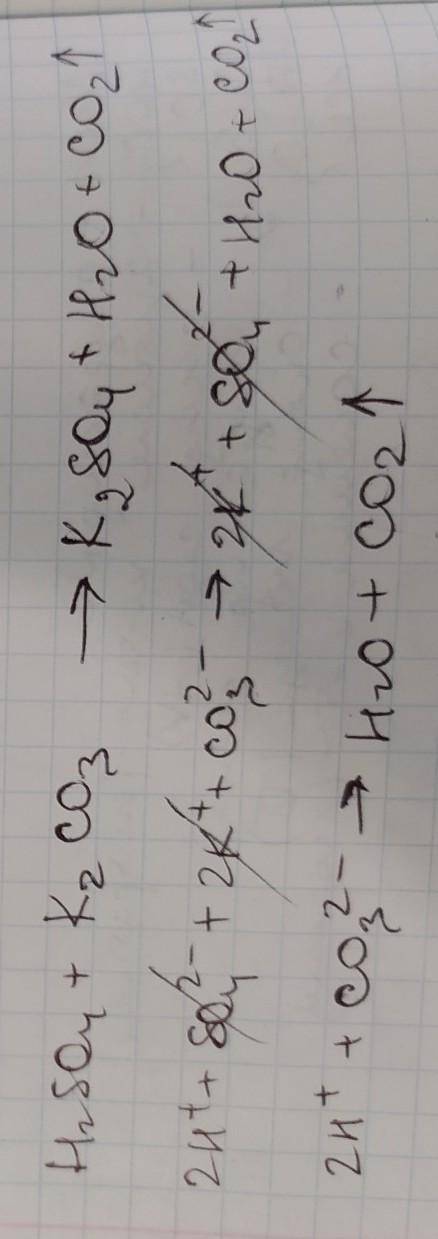 H₂SO₄ + K₂CO₃ → K₂SO₄ + H₂O + CO₂↑
2H⁺ + SO₄²⁻ + 2K⁺ + CO₃²⁻ → 2K⁺ + SO₄²⁻ + H₂O + CO₂↑
2H⁺ + CO₃²⁻ → H₂O + CO₂↑